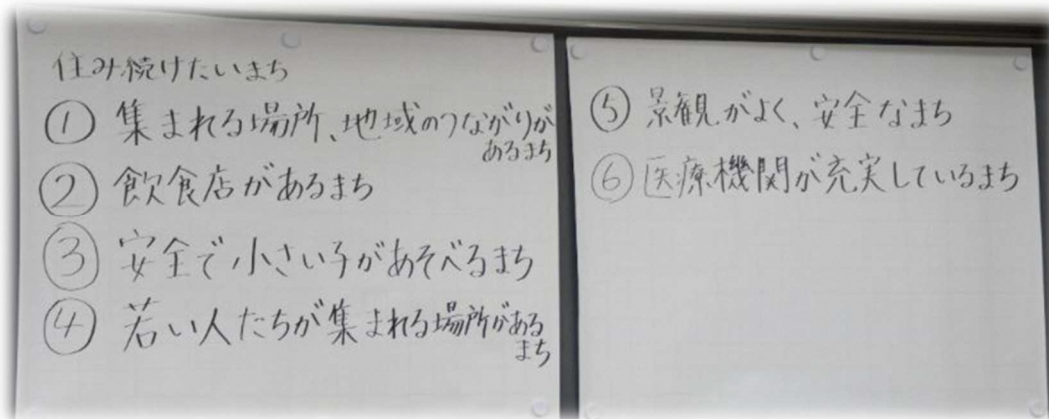 住み続けたいまち
① 集まれる場所、地域のつながりが
あるまち
② 飲食店があるまち
③ 安全で小さい子があそべるまち
④ 若い人たちが集まれる場所がある
まち
⑤ 景観がよく、安全なまち
⑥ 医療機関が充実しているまち